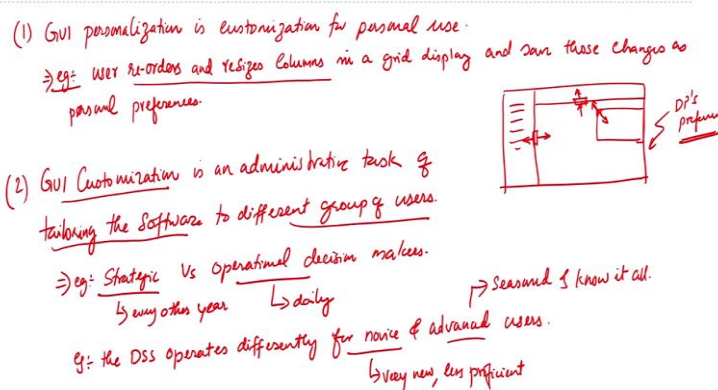 (1) GUI personalization is customization for personal use.
⇒ eg: user re-orders and resizes columns in a grid display and save those changes as
personal preferences.
DP's
(2) GUI Customization is an administrative task of
tailoring the software to different group of users.
⇒ eg: Strategic Vs operational decision makers.
↳ every other year ↳ daily
↱ Seasoned & know it all.
eg: the DSS operates differently for novice & advanced users.
↳ very new, less proficient